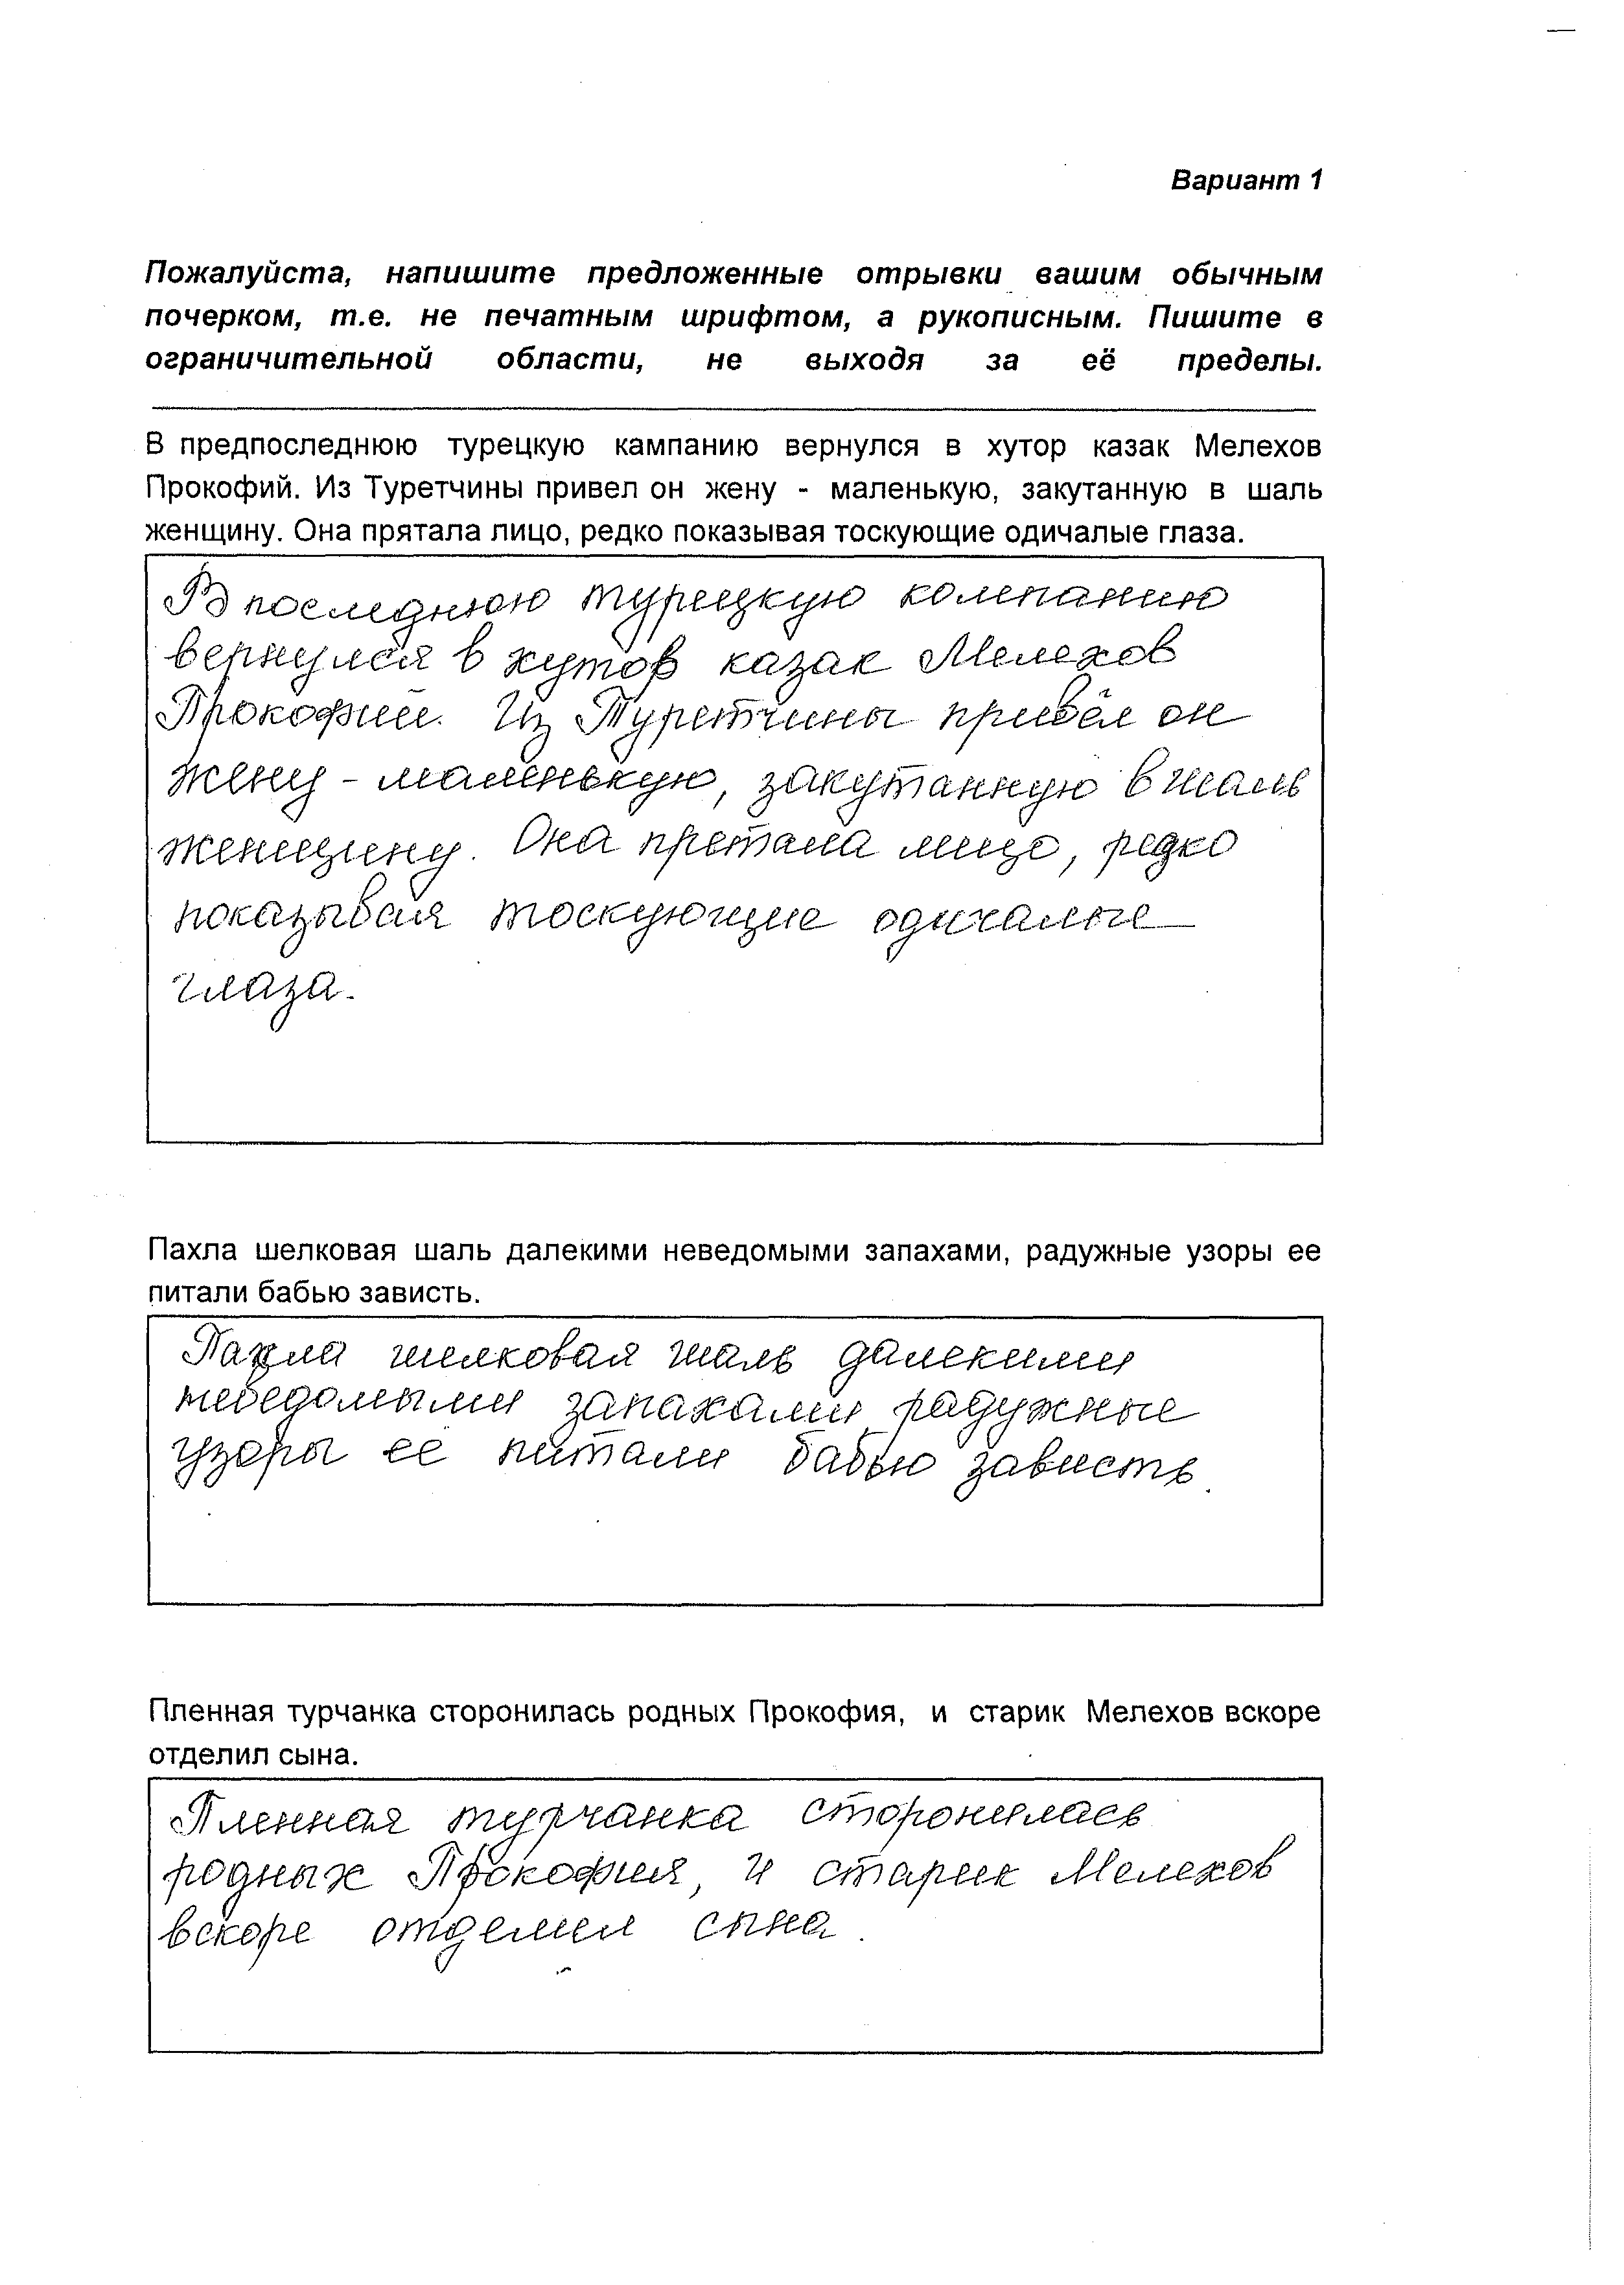 Вариант 1
Пожалуйста, напишите предложенные отрывки вашим обычным
почерком, т.е. не печатным шрифтом, а рукописным. Пишите в
ограничительной области, не выходя за её пределы.
В предпоследнюю турецкую кампанию вернулся в хутор казак Мелехов
Прокофий. Из Туретчины привел он жену - маленькую, закутанную в шаль
женщину. Она прятала лицо, редко показывая тоскующие одичалые глаза.
В последнюю турецкую компанию
вернулся в хутов казак Мелехов
Прокофий. Из Туретчины привёл он
жену - маленькую, закутанную в шаль
женщину. Она претала лицо, редко
показывая тоскующие одичалые
глаза.
Пахла шелковая шаль далекими неведомыми запахами, радужные узоры ее
питали бабью зависть.
Пахла шелковая шаль далекими
неведомыми запахами, радужные
узоры её питали бабью зависть.
Пленная турчанка сторонилась родных Прокофия, и старик Мелехов вскоре
отделил сына.
Пленная турчанка сторонилась
родных Прокофия, и старик Мелехов
вскоре отделил сына.